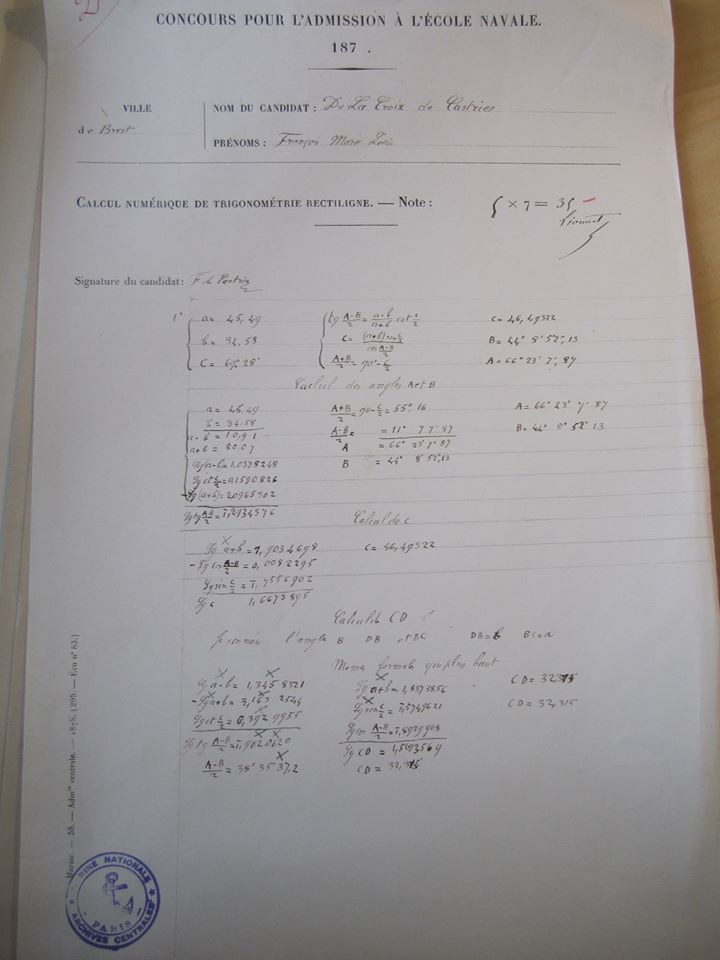 CONCOURS POUR L'ADMISSION À L'ÉCOLE NAVALE.
187 .
VILLE
de Brest
NOM DU CANDIDAT : De La Croix de Castries
PRÉNOMS : François Marie Louis
CALCUL NUMÉRIQUE DE TRIGONOMÉTRIE RECTILIGNE. — Note : 5 × 7 = 35
Signature du candidat : F de Castries
1° a = 45,49 tg A-B/2 = a-b/a+b cot c/2 c = 46,49322
b = 34,58 c = (a+b) sin c/2 / cos A-B/2 B = 44° 8' 52",13
C = 69° 28' A+B/2 = 90° - c/2 A = 66° 23' 7",87
Calcul des angles A et B
a = 45.49 A+B/2 = 90 - c/2 = 55° 16 A = 66° 23' 7" 87
b = 34.58 A-B/2 = 11° 7' 7" 87 B = 44° 8' 52" 13
a - b = 10,91 A = 66° 23' 7" 87
a + b = 80,07 B = 44° 8' 52",13
lg (a-b) = 1,0378248
lg cot c/2 = 0,1590826
lg (a+b) =
lg tg A-B/2 = 1,2934576
Calcul de c
lg a+b = 1,9034698 c = 46,49322
- lg cos A-B/2 = 0,0082295
lg sin c/2 = 1,7556902
lg c 1,6673895
Calcul de CD
l'angle B DB et BC DB = BC = a
Meme formule que plus haut
lg a-b = 1,3458321 lg a+b = 1,8373856 CD = 32,315
- lg a+b = lg sin c/2 = 1,5749621 CD = 32,315
lg cot c/2 = 0,3929955 lg cos A-B/2 = 1,8929908
lg tg A-B/2 = 1,9020620 lg CD = 1,5093569
A-B/2 = 38° 35' 37,2 CD = 32,315
Marine. — 58. — Admon centrale. — 1875. (205. — Écu n° 63.)
MARINE NATIONALE
PARIS
ARCHIVES CENTRALES